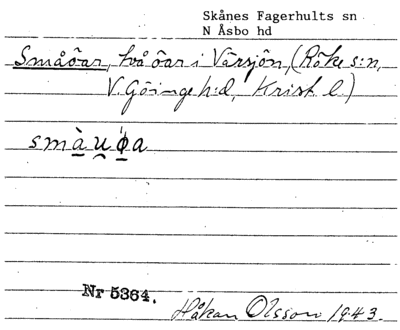 Skånes Fagerhults sn
N Åsbo hd
Småöar, två öar i Värsjön, (Röke s:n,
V. Göinge h:d, Krist. l.)
smàu̯ǿa
Nr 5364.
Håkan Olsson 1943.